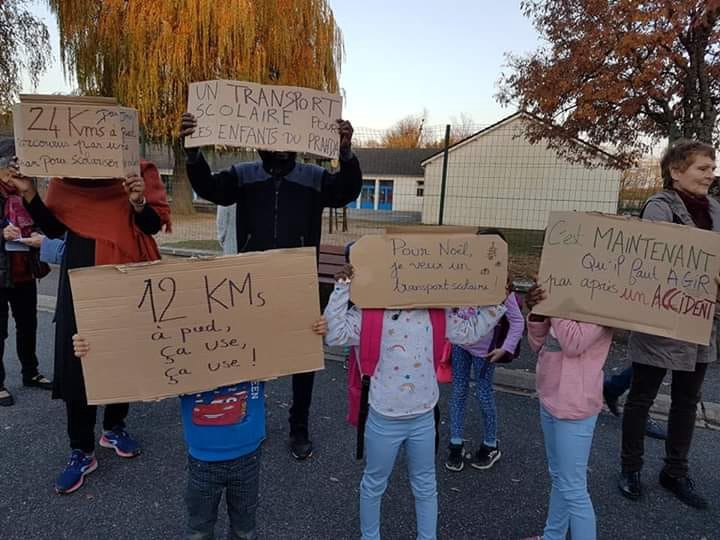 24 Kms
à pied
UN TRANSPORT
SCOLAIRE POUR
LES ENFANTS DU PRAHDA
12 KMs
à pied,
ça use,
ça use !
Pour Noël,
je veux un
transport scolaire !
C'est MAINTENANT
Qu'il faut AGIR
pas après un ACCIDENT